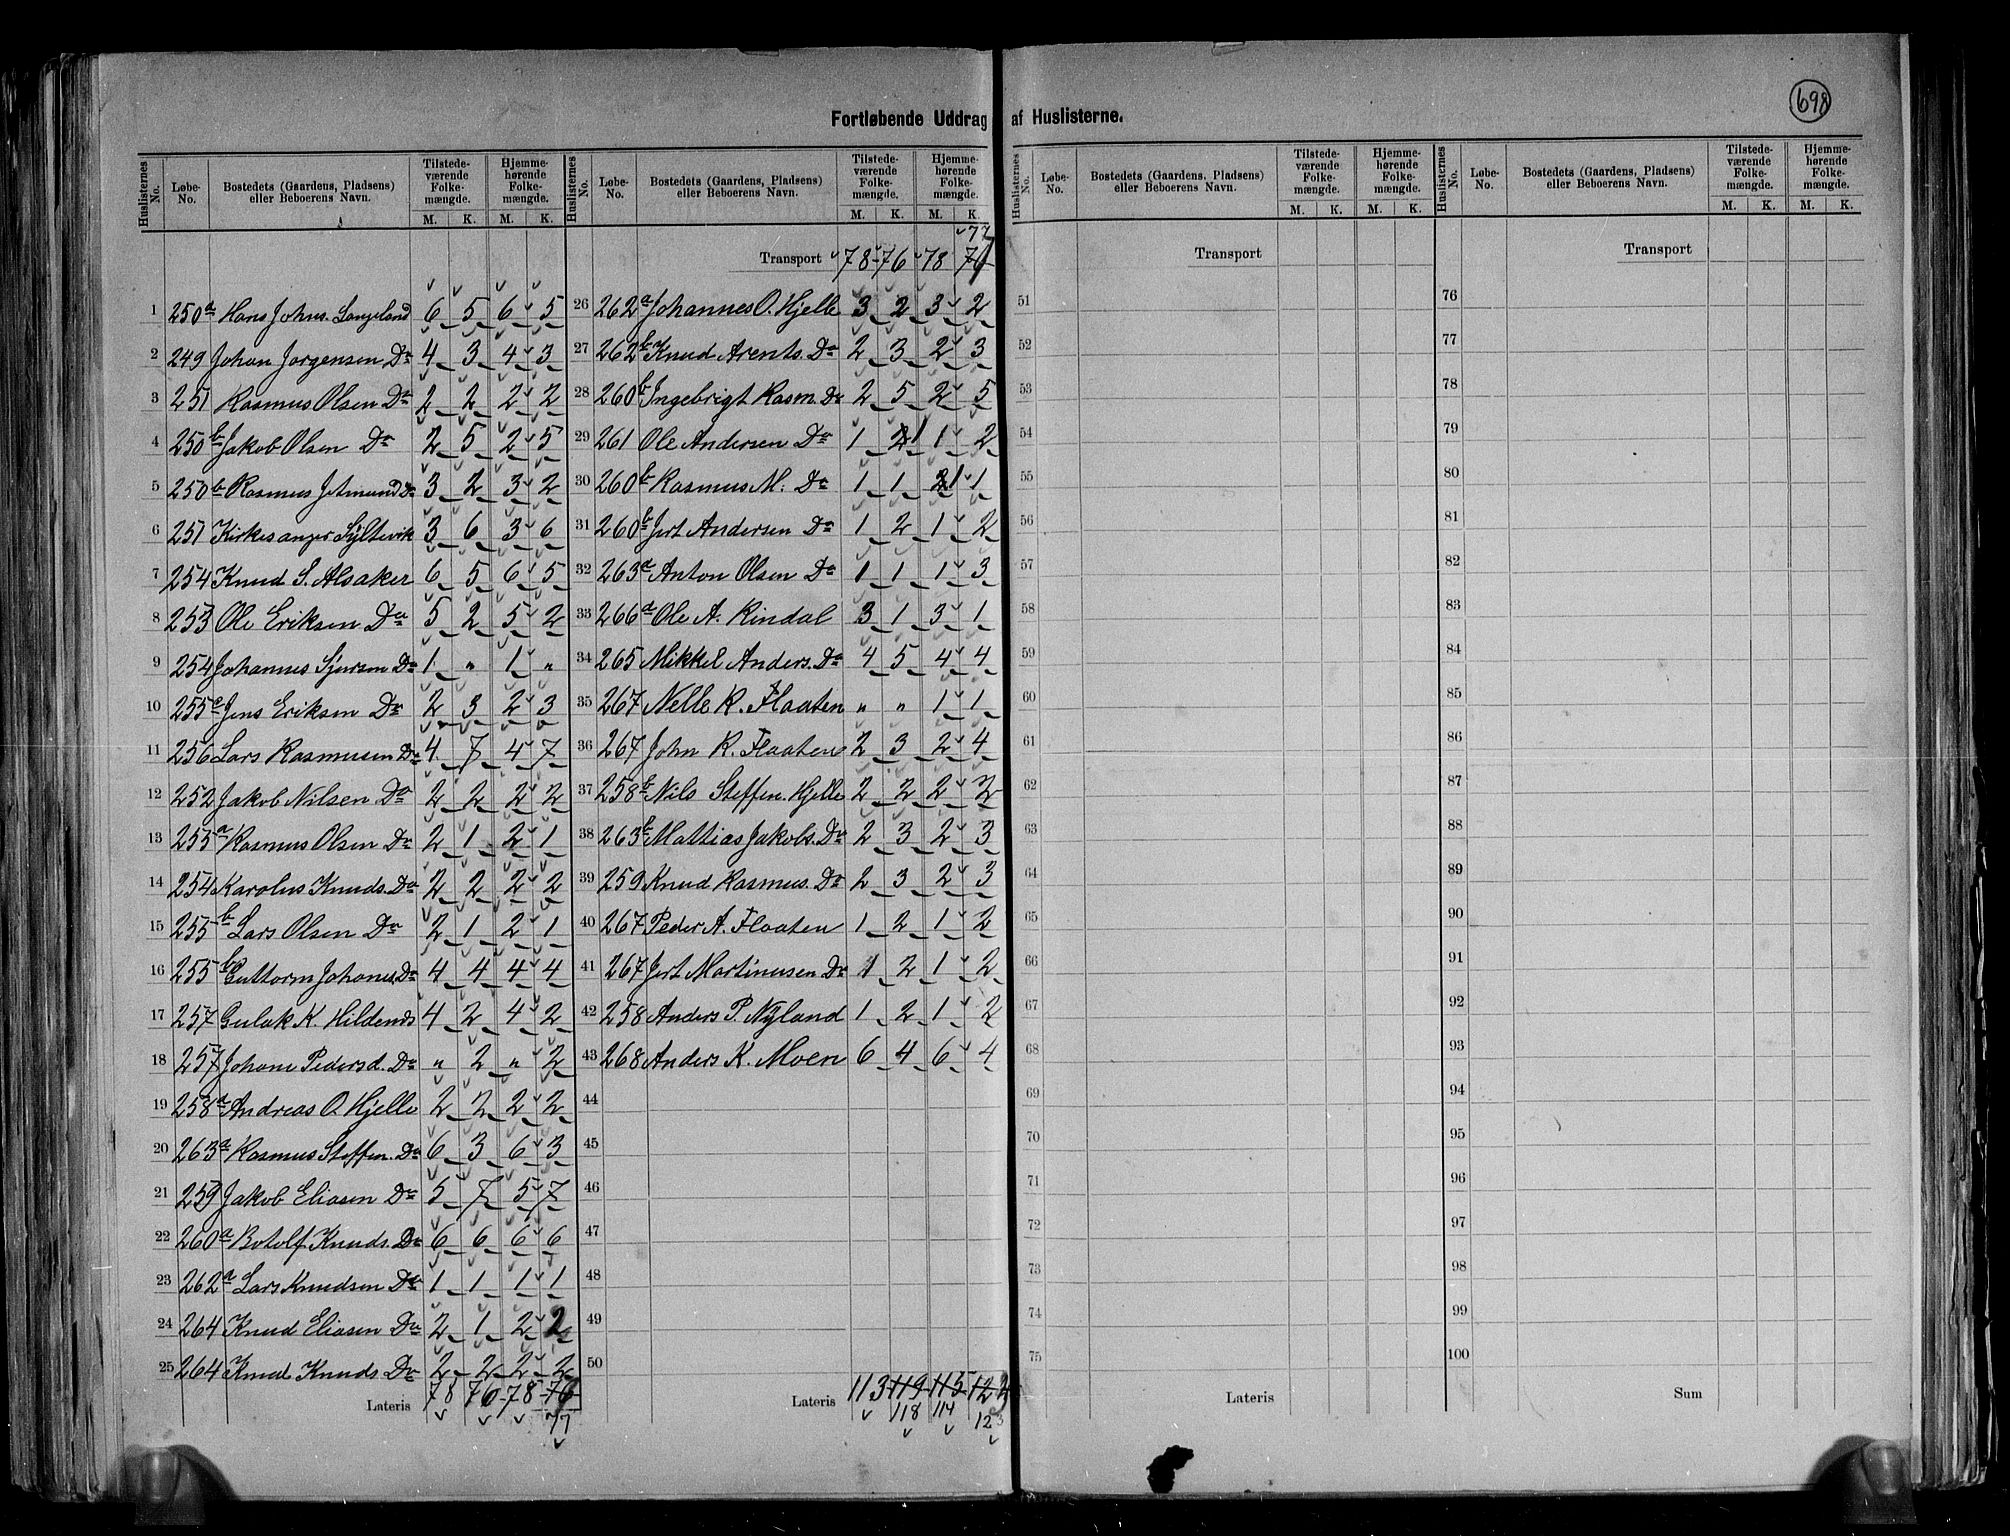 698
Fortløbende Uddrag af Huslisterne.
Huslisternes No. Løbe-No. Bostedets (Gaardens, Pladsens) eller Beboerens Navn. Tilstedeværende Folkemængde. M. K. Hjemmehørende Folkemængde. M. K.
1 250a Hans Johns. Langeland 6 5 6 5
2 249 Johan Jørgensen Do 4 3 4 3
3 251 Rasmus Olsen Do 2 2 2 2
4 250b Jakob Olsen Do 2 5 2 5
5 250b Rasmus Jetmund Do 3 2 3 2
6 251 Kirkesanger Syltevik 3 6 3 6
7 254 Knud S. Alsaker 6 5 6 5
8 253 Ole Eriksen Do 5 2 5 2
9 254 Johannes Sjursen Do 1 " 1 "
10 255c Jens Eriksen Do 2 3 2 3
11 256 Lars Rasmusen Do 4 7 4 7
12 252 Jakob Nilsen Do 2 2 2 2
13 255a Rasmus Olsen Do 2 1 2 1
14 254 Karolus Knuds. Do 2 2 2 2
15 255b Lars Olsen Do 2 1 2 1
16 255b Guttorm Johanes Do 4 4 4 4
17 257 Gulak K. Hildenes 4 2 4 2
18 257 Johane Pedersd. Do " 2 " 2
19 258a Andreas O. Hjelle 2 2 2 2
20 263a Rasmus Steffen. Do 6 3 6 3
21 259 Jakob Eliasen Do 5 7 5 7
22 260a Botolf Knuds. Do 6 6 6 6
23 262a Lars Knudsen Do 1 1 1 1
24 264 Knud Eliasen Do 2 1 2 2
25 264 Knud Knuds Do 2 2 2 2
Lateris 78 76 78 76
77
Huslisternes No. Løbe-No. Bostedets (Gaardens, Pladsens) eller Beboerens Navn. Tilstedeværende Folkemængde. M. K. Hjemmehørende Folkemængde. M. K.
77
Transport 78 76 78 76
26 262a Johannes O. Hjelle 3 2 3 2
27 262b Knud Arents. Do 2 3 2 3
28 260b Ingebrigt Rasm. Do 2 5 2 5
29 261 Ole Andersen Do 1 2 1 1 2
30 260b Rasmus M. Do 1 1 2 1 1
31 260b Jert Andersen Do 1 2 1 2
32 263a Anton Olsen Do 1 1 1 3
33 266a Ole A. Rindal 3 1 3 1
34 265 Mikkel Anders. Do 4 5 4 4
35 267 Nelle R. Flaaten " " 1 1
36 267 John R. Flaaten 2 3 2 4
37 258b Nils Steffen. Hjelle 2 2 2 2
38 263b Mattias Jakobs. Do 2 3 2 3
39 259 Knud Rasmus. Do 2 3 2 3
40 267 Peder A. Flaaten 1 2 1 2
41 267 Jert Martinusen Do 1 2 1 2
42 258 Anders P. Nyland 1 2 1 2
43 268 Anders K. Moen 6 4 6 4
44
45
46
47
48
49
50
Lateris 113 119 115 122
118 114 123
Huslisternes No. Løbe-No. Bostedets (Gaardens, Pladsens) eller Beboerens Navn. Tilstedeværende Folkemængde. M. K. Hjemmehørende Folkemængde. M. K.
Transport
51
52
53
54
55
56
57
58
59
60
61
62
63
64
65
66
67
68
69
70
71
72
73
74
75
Lateris
Huslisternes No. Løbe-No. Bostedets (Gaardens, Pladsens) eller Beboerens Navn. Tilstedeværende Folkemængde. M. K. Hjemmehørende Folkemængde. M. K.
Transport
76
77
78
79
80
81
82
83
84
85
86
87
88
89
90
91
92
93
94
95
96
97
98
99
100
Sum